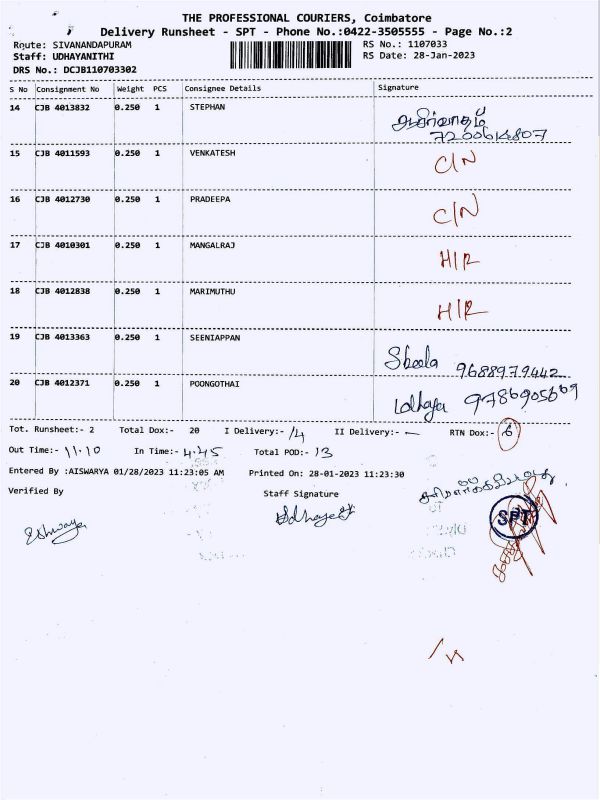 THE PROFESSIONAL COURIERS, Coimbatore
Delivery Runsheet - SPT - Phone No.:0422-3505555 - Page No.:2
Route: SIVANANDAPURAM RS No.: 1107033
Staff: UDHAYANITHI RS Date: 28-Jan-2023
DRS No.: DCJB110703302
S No Consignment No Weight PCS Consignee Details Signature
14 CJB 4013832 0.250 1 STEPHAN
7200614807
15 CJB 4011593 0.250 1 VENKATESH C/N
16 CJB 4012730 0.250 1 PRADEEPA C/N
17 CJB 4010301 0.250 1 MANGALRAJ H/R
18 CJB 4012838 0.250 1 MARIMUTHU H/R
19 CJB 4013363 0.250 1 SEENIAPPAN Sheela 9688979442
20 CJB 4012371 0.250 1 POONGOTHAI
Tot. Runsheet:- 2 Total Dox:- 20 I Delivery:- 14 II Delivery:- - RTN Dox:- 6
Out Time:- 11.10 In Time:- 4.45 Total POD:- 13
Entered By :AISWARYA 01/28/2023 11:23:05 AM Printed On: 28-01-2023 11:23:30
Verified By Staff Signature
SPT